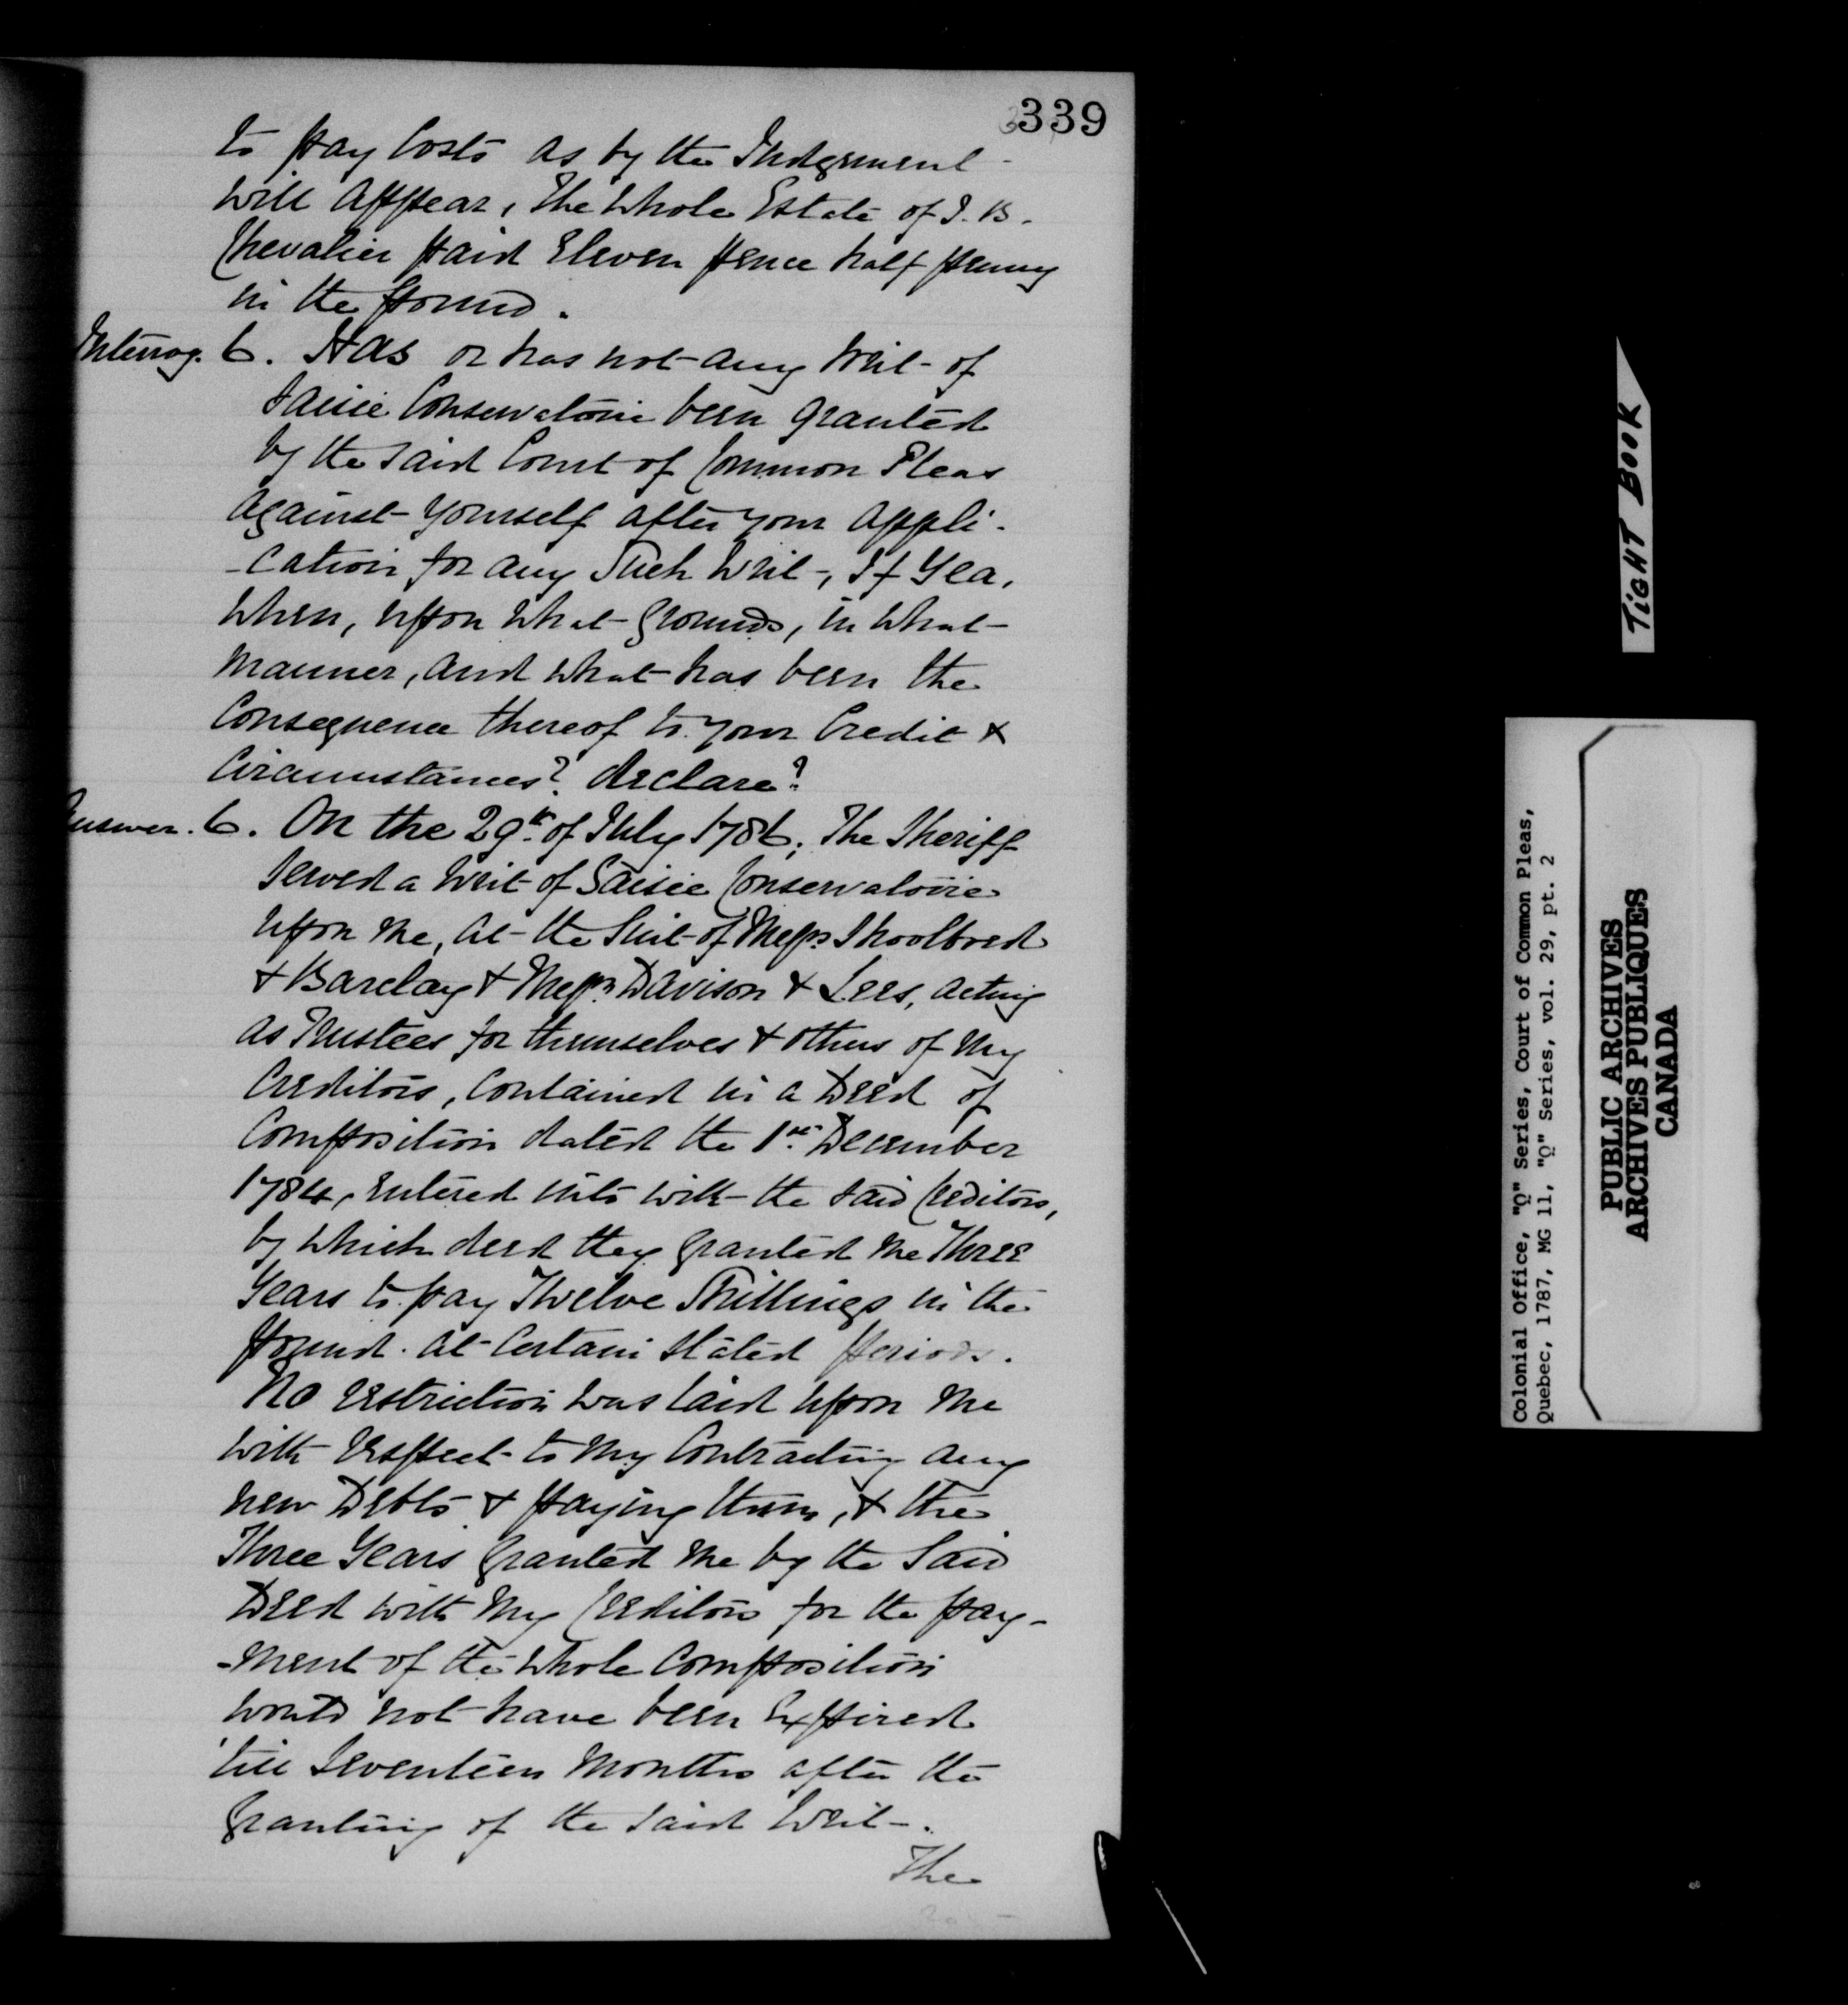 339
to pay Costs as by the Judgement
will appear, The whole Estate of J. B.
Chevalier paid Eleven pence half penny
in the pound.
Interrog. 6. Has or has not any Writ of
Saisie Conservatoire been granted
by the said Court of Common Pleas
against yourself after your appli-
-cation for any Such Writ, If Yea,
when, upon what grounds, in what
manner, and what has been the
Consequence thereof to your Credit &
Circumstances? declare?
Answer. 6. On the 29th of July 1786, The Sheriff
served a Writ of Saisie Conservatoire
upon me, at the Suit of Messrs Shoolbred
& Barclay & Messrs Davison & Lees, acting
as Trustees for themselves & others of my
Creditors, contained in a Deed of
Composition dated the 1st December
1784, entered into with the said Creditors,
by which deed they granted me Three
Years to pay Twelve Shillings in the
pound at certain stated periods.
No restriction was laid upon me
with respect to my Contracting any
new Debts & paying them, & the
Three Years granted me by the Said
Deed with my Creditors for the pay-
-ment of the whole Composition
would not have been Expired
'till Seventeen Months after the
granting of the said Writ.
The
TIGHT BOOK
Colonial Office, "Q" Series, Court of Common Pleas,
Quebec, 1787, MG 11, "Q" Series, vol. 29, pt. 2
PUBLIC ARCHIVES
ARCHIVES PUBLIQUES
CANADA